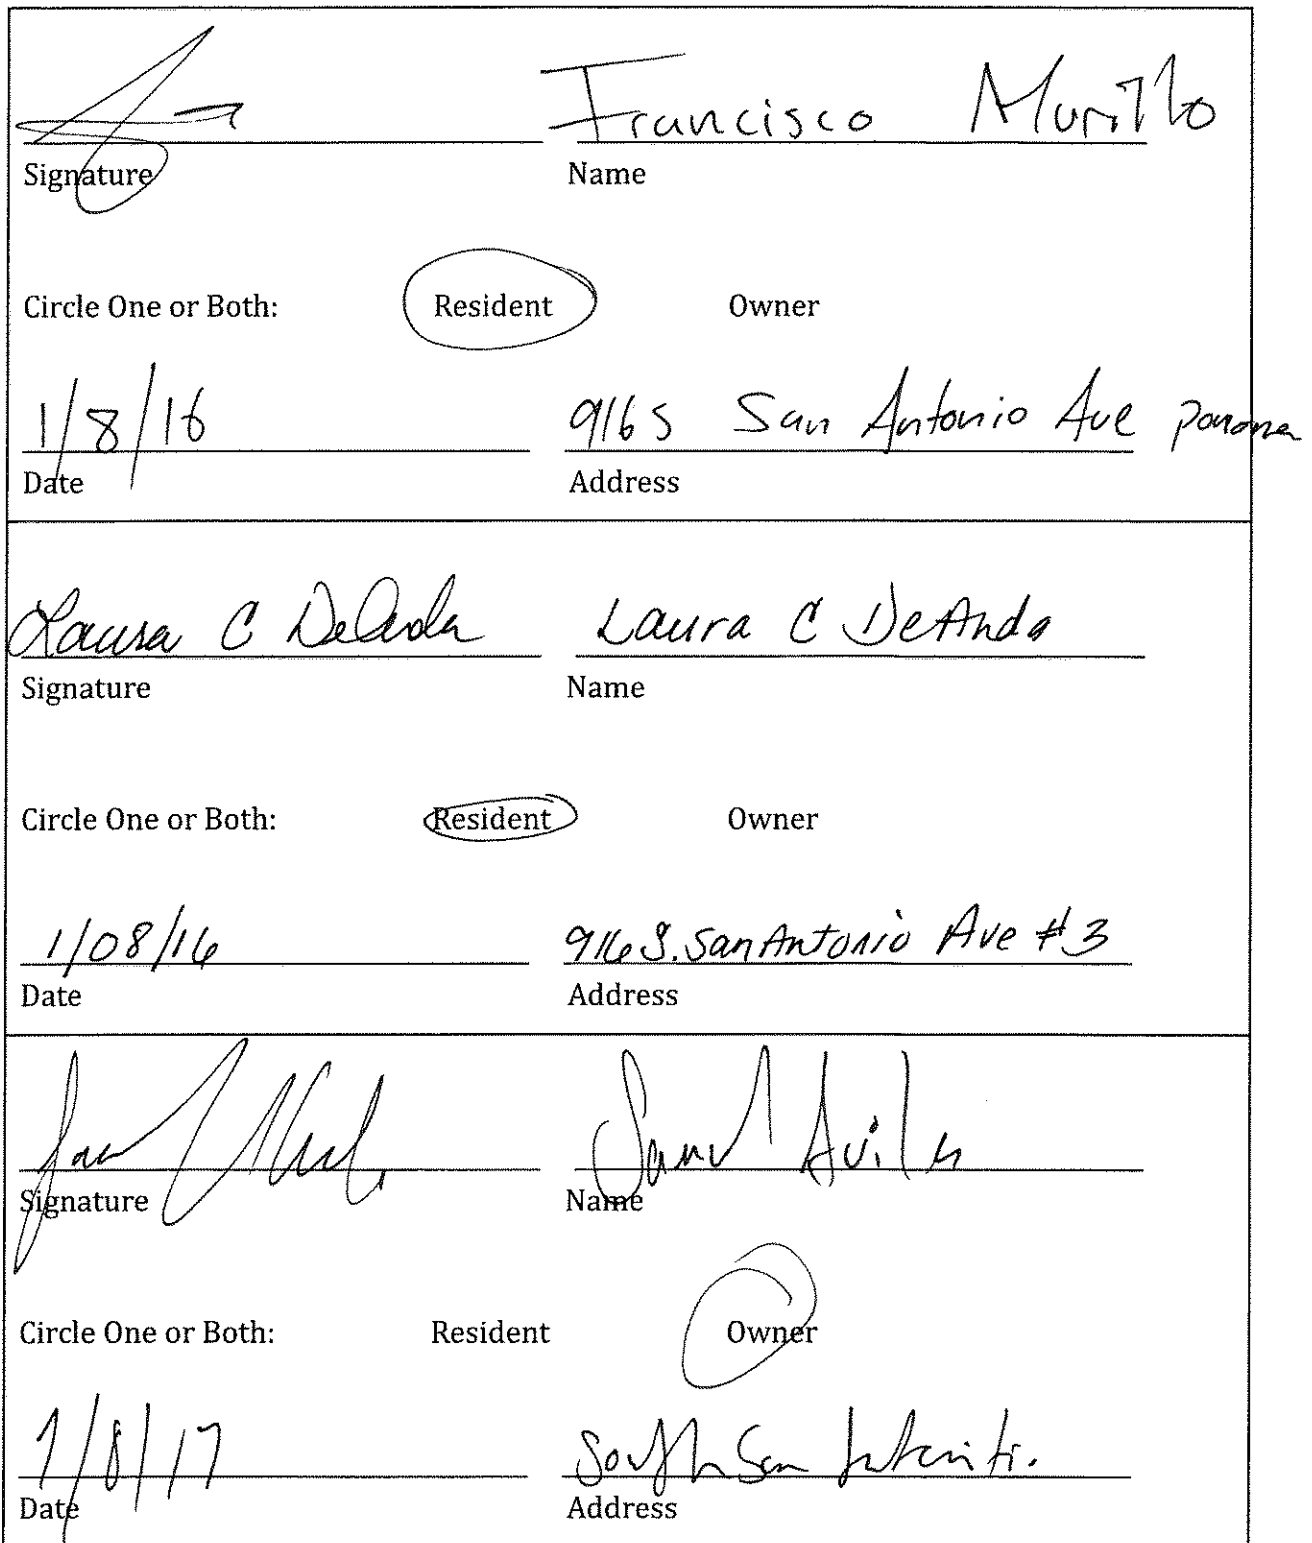 Francisco Murillo
Signature Name
Circle One or Both: Resident Owner
1/8/16 916 S San Antonio Ave Pomona
Date Address
Laura C DeAnda Laura C DeAnda
Signature Name
Circle One or Both: Resident Owner
1/08/16 916 S. San Antonio Ave #3
Date Address
Signature Name
Circle One or Both: Resident Owner
1/8/17 South San
Date Address